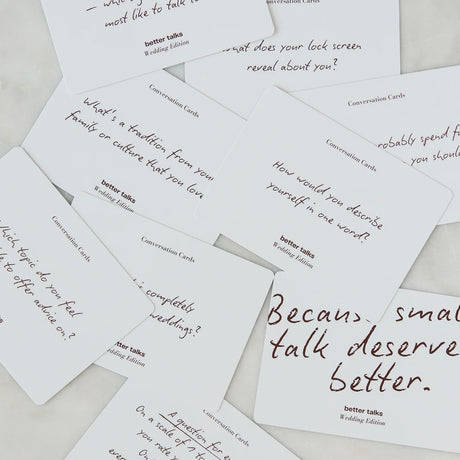 most like to talk to
better talks
Wedding Edition
What does your lock screen
reveal about you?
Conversation Cards
What's a tradition from your
family or culture that you love
better talks
Wedding Edition
Conversation Cards
probably spend
you should
Conversation Cards
How would you describe
yourself in one word?
better talks
Wedding Edition
Conversation Cards
which topic do you feel
to offer advice on?
Conversation Cards
completely
weddings?
better talks
Wedding Edition
Because small
talk deserve
better.
better talks
Wedding Edition
Conversation Cards
A question for
On a scale of 1
you rate